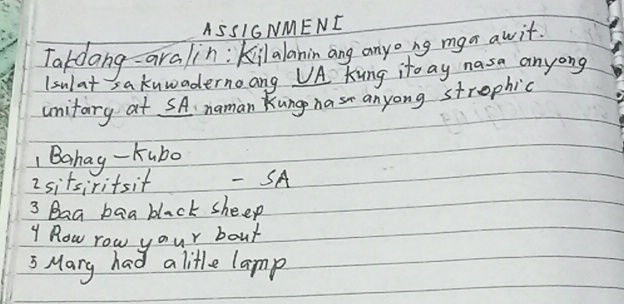 ASSIGNMENT
Takdang-aralin: Kilalanin ang anyo ng mga awit.
Isulat sa kuwaderno ang UA kung ito ay nasa anyong
unitary at SA naman kung nasa anyong strophic
1 Bahay-kubo
2 sitsiritsit - SA
3 Baa baa black sheep
4 Row row your bout
5 Mary had a litle lamp